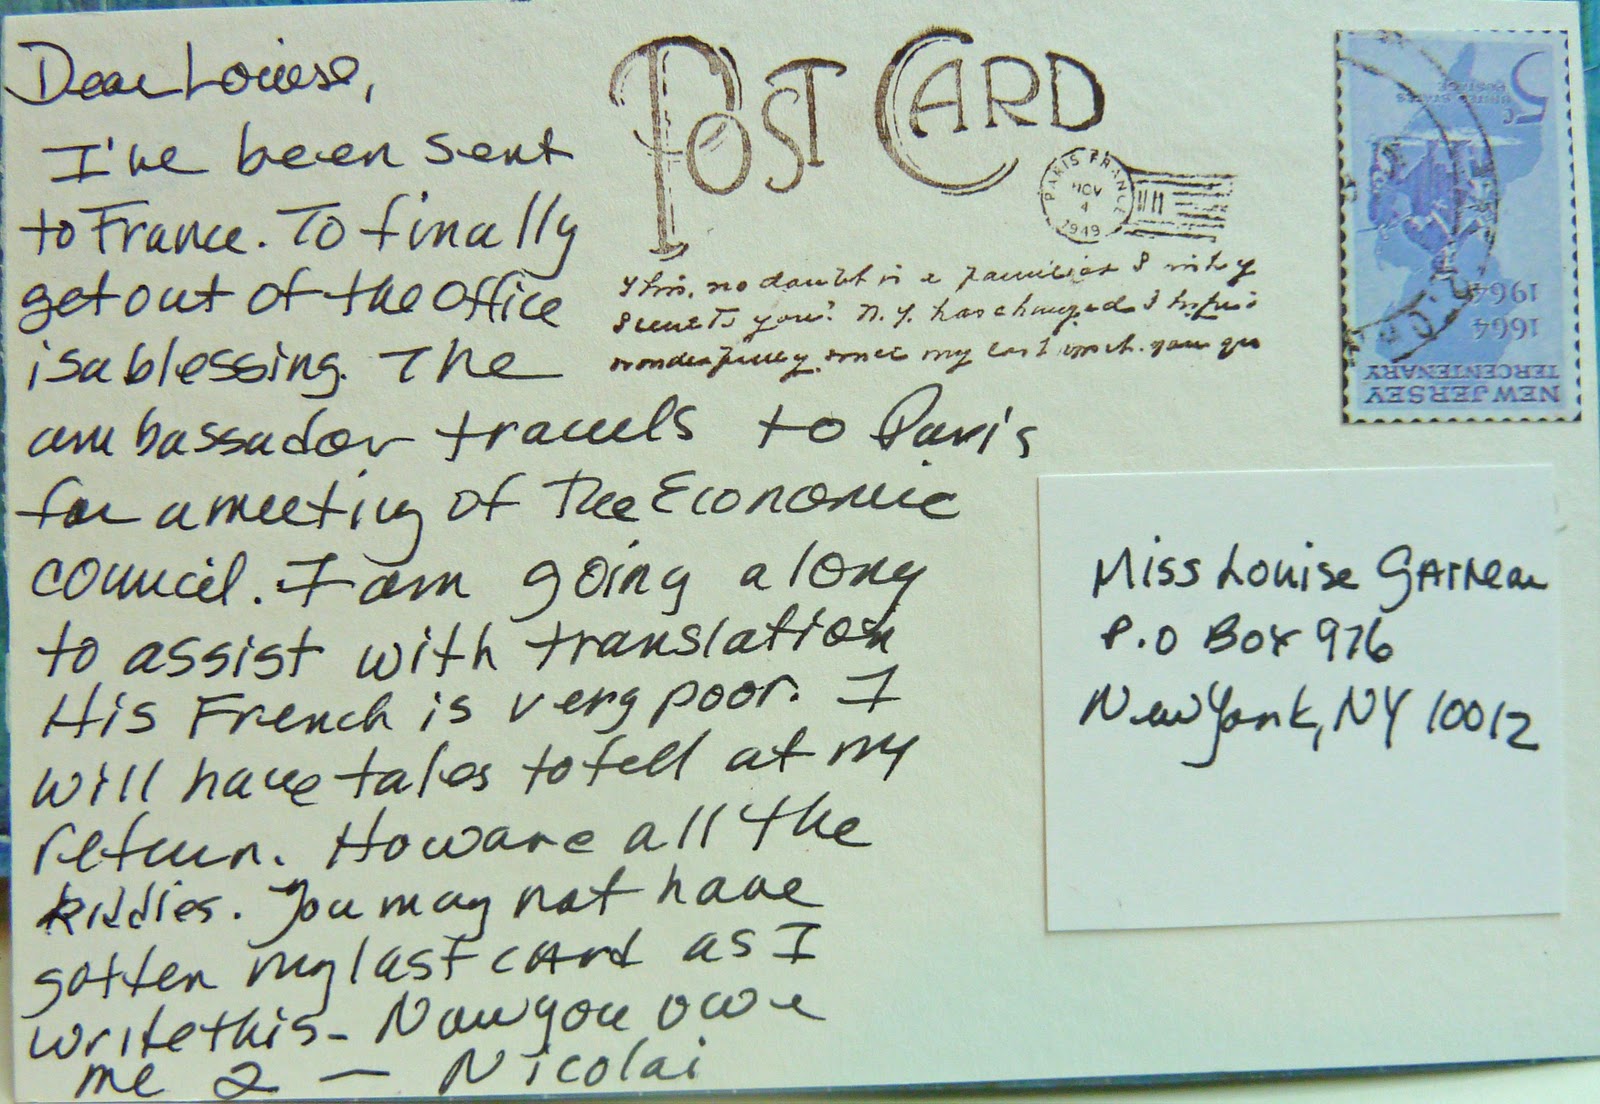 Dear Louise,
I've been sent
to France. To finally
get out of the office
is a blessing. The
ambassador travels to Paris
for a meeting of the Economic
council. I am going along
to assist with translation
His French is very poor. I
will have tales to tell at my
return. How are all the
kiddies. You may not have
gotten my last card as I
write this - Now you owe
me 2 — Nicolai
POST CARD
PARIS FRANCE
NOV
4
1949
This, no doubt is a familiar
you? N.Y. has changed
since my last
5c
UNITED STATES
POSTAGE
1964
1664
NEW JERSEY
TERCENTENARY
Miss Louise
P.O Box 976
New York, NY 10012